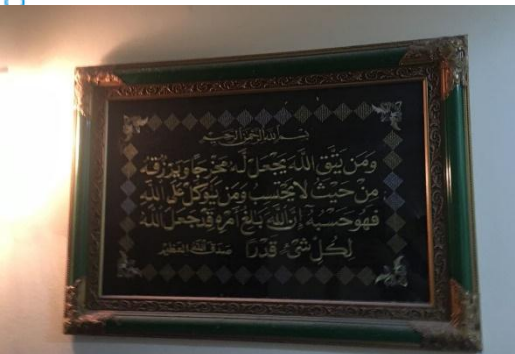 بسم الله الرحمن الرحيم
ومن يتق الله يجعل له مخرجا ويرزقه
من حيث لا يحتسب ومن يتوكل على الله
فهو حسبه إن الله بالغ أمره قد جعل الله
لكل شيء قدرا صدق الله العظيم